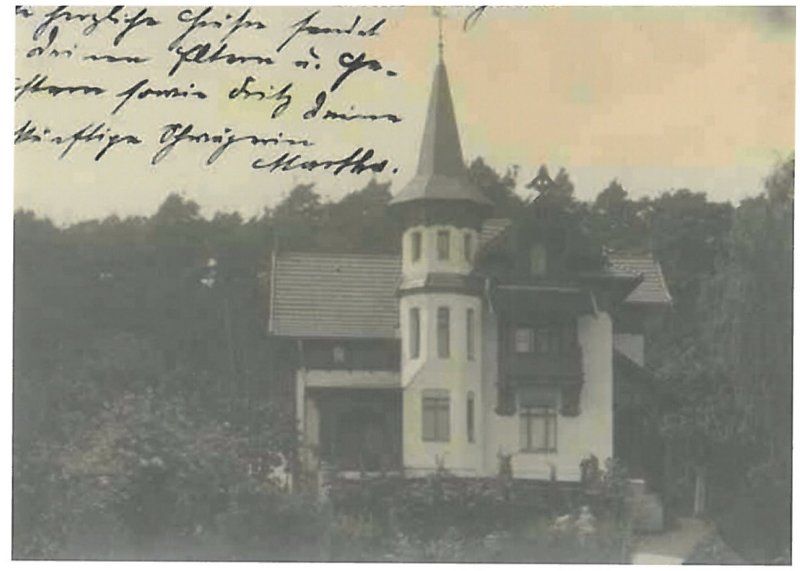 herzliche Grüße sendet
Deinen Eltern u. Ge-
stern sowie Fritz Deine
künftige Schwägerin
Martha.